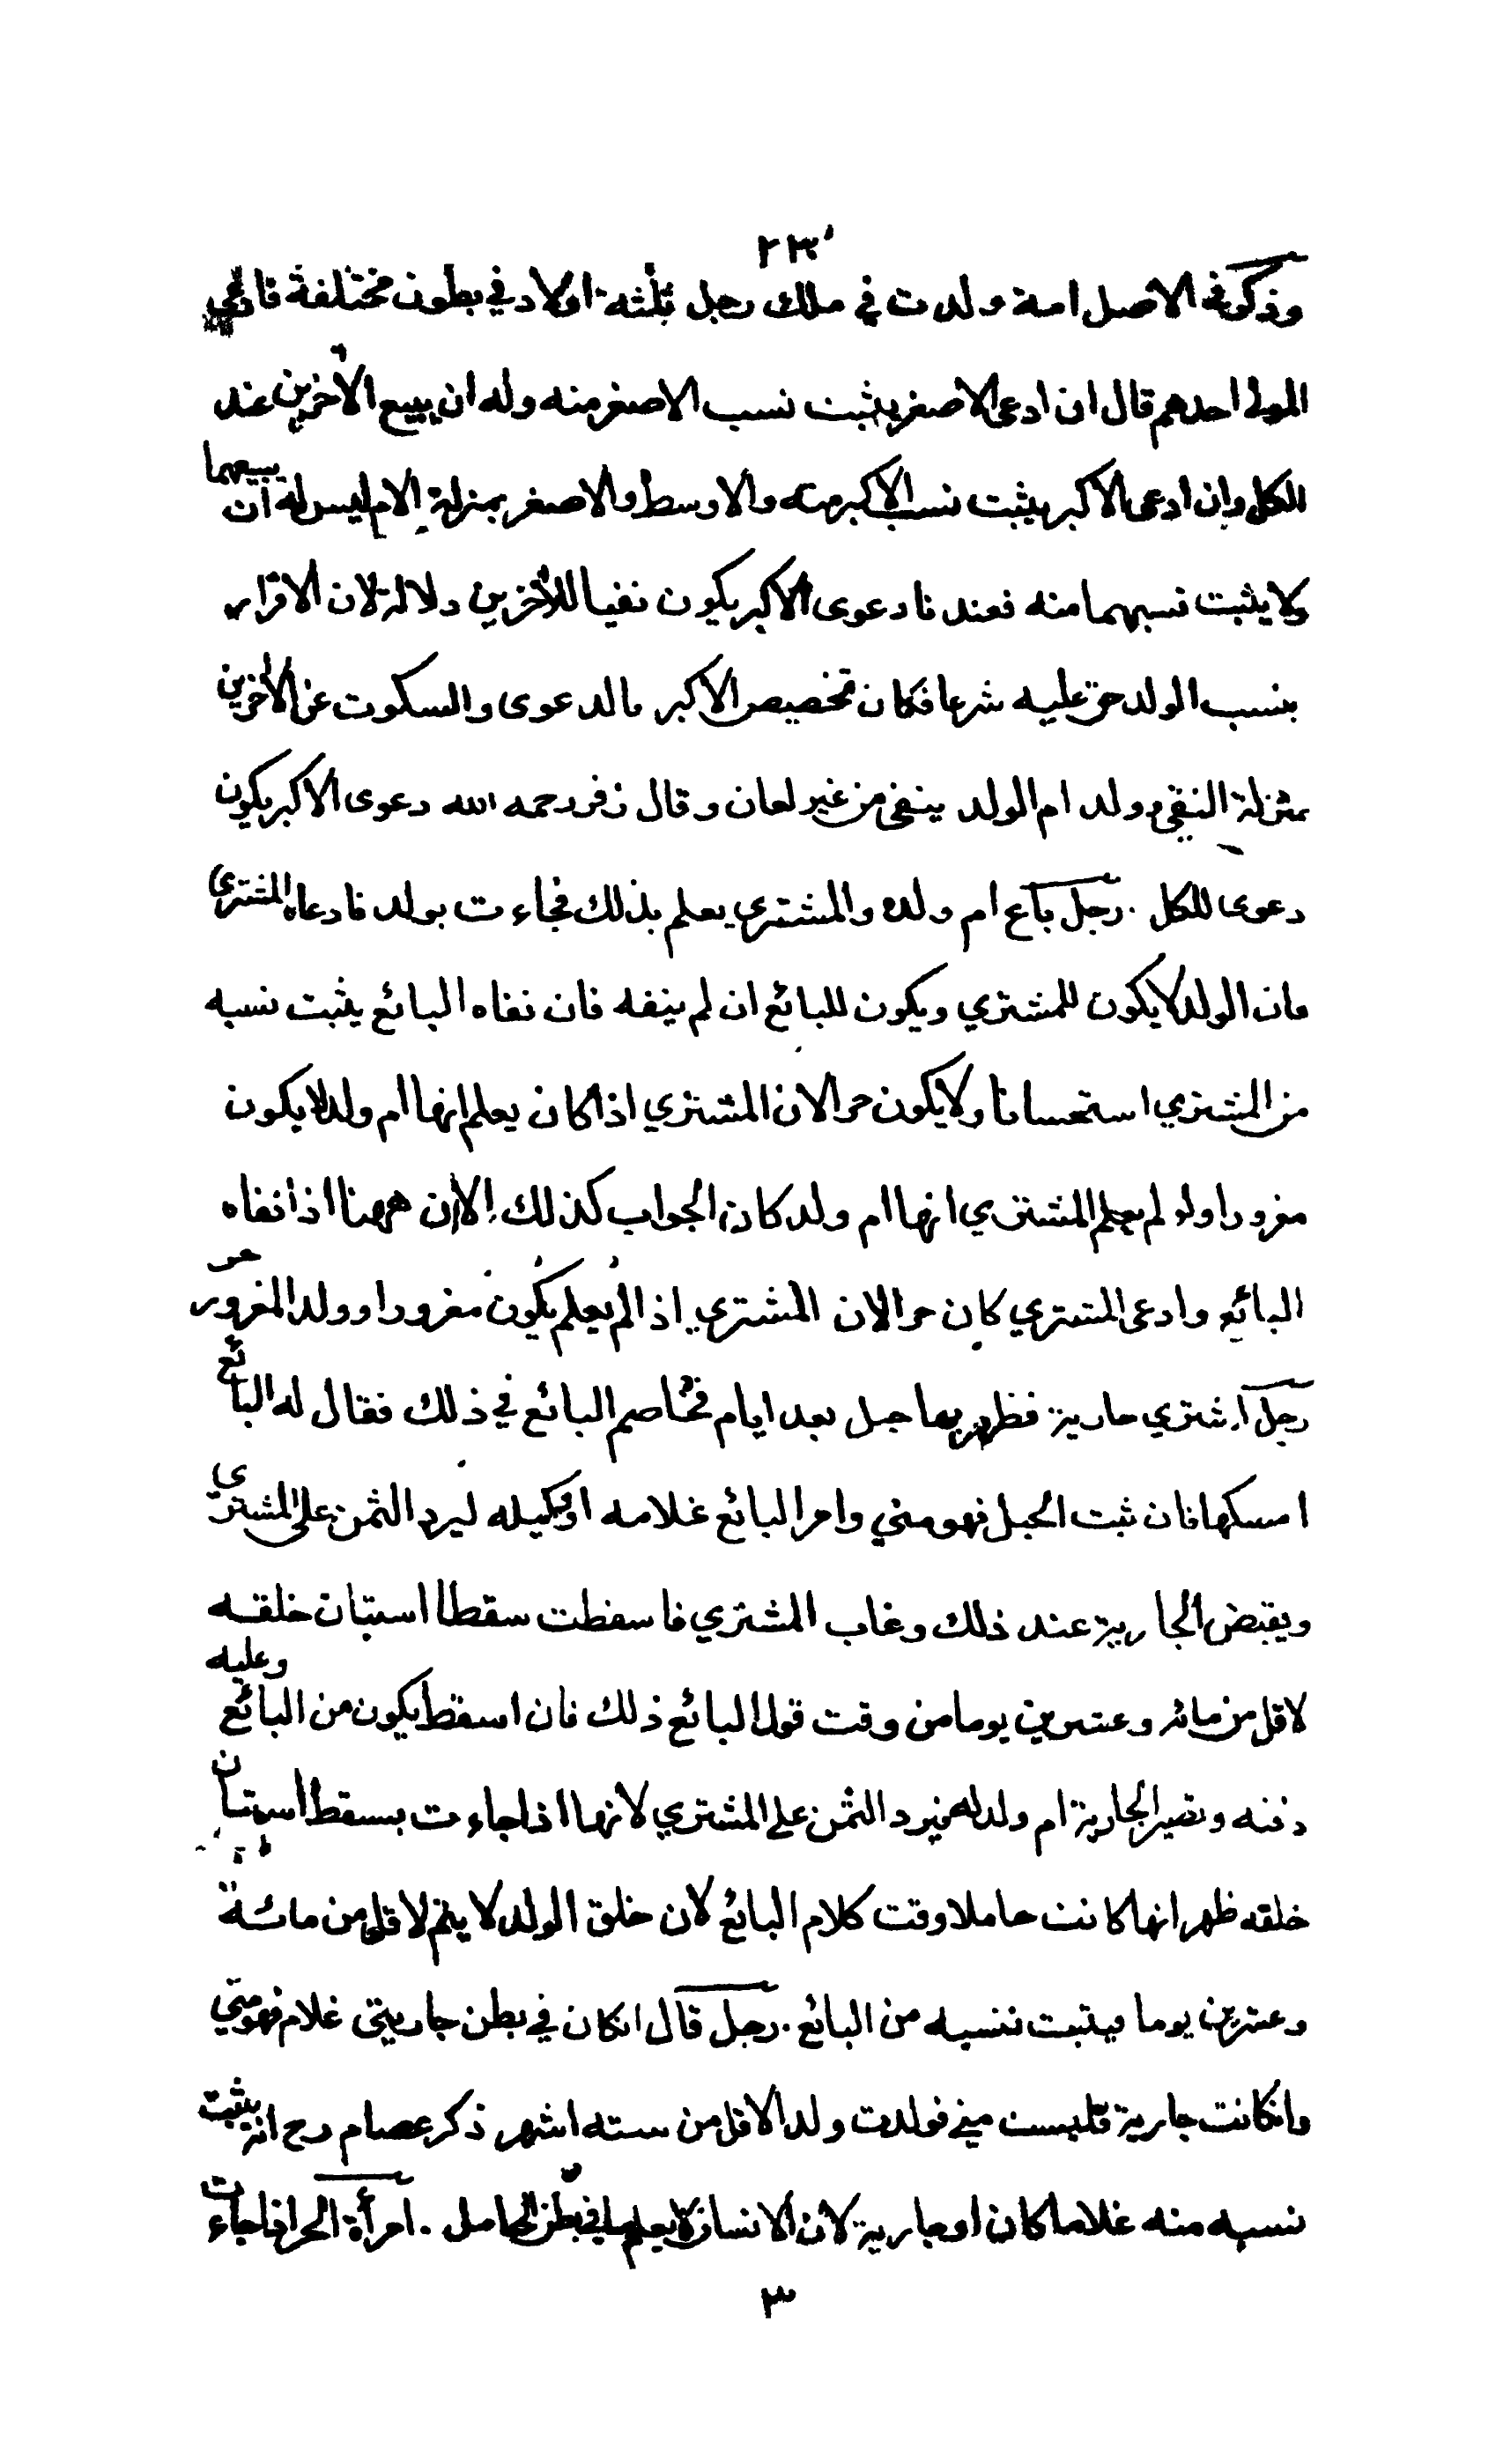 ٢٣
وذكر في الاصل امة ولدت في ملك رجل ثلثة اولاد في بطون مختلفة فادعى
المولى احدهم قال ان ادعى الاصغر يثبت نسب الاصغر منه وله ان يبيع الأخرين عند
الكل وان ادعى الاكبر يثبت نسب الاكبر منه والاوسط والاصغر بمنزلة الام ليس له ان يبيعهما
ولا يثبت نسبهما منه فعندنا دعوى الاكبر يكون نفيا للأخرين دلالة لان الاقرار
بنسب الولد حق عليه شرعا فكان تخصيص الاكبر بالدعوى والسكوت عن الأخرين
بمنزلة النفي وولد ام الولد ينفى من غير لعان وقال زفر رحمه الله دعوى الاكبر يكون
دعوى للكل . رجل باع ام ولده والمشتري يعلم بذلك فجاءت بولد فادعاه المشتري
فان الولد لا يكون للمشتري ويكون للبائع ان لم ينفه فان نفاه البائع يثبت نسبه
من المشتري استحسانا ولا يكون حرا لان المشتري اذا كان يعلم انها ام ولد لا يكون
مغرورا ولو لم يعلم المشتري انها ام ولد كان الجواب كذلك الا ان ههنا اذا نفاه
البائع وادعى المشتري كان حرا لان المشتري اذا لم يعلم يكون مغرورا وولد المغرور حر
رجل اشتري جارية فظهر بها حبل بعد ايام فخاصم البائع في ذلك فقال له البائع
امسكها فان ثبت الحبل فهو مني وامر البائع غلامه او وكيله ليرد الثمن على المشتري
ويقبض الجارية عند ذلك وغاب المشتري فاسقطت سقطا استبان خلقه
لاقل من مائة وعشرين يوما من وقت قول البائع ذلك فان اسقط يكون من البائع وعليه
دفنه وتصير الجارية ام ولد له ويرد الثمن على المشتري لانها اذا جاءت بسقط استبان
خلقه ظهر انها كانت حاملا وقت كلام البائع لان خلق الولد لا يتم لاقل من مائة
وعشرين يوما فيثبت نسبه من البائع . رجل قال انكان في بطن جاريتي غلام فهو مني
وانكانت جارية فليست مني فولدت ولدا لاقل من ستة اشهر ذكر عصام رح انه يثبت
نسبه منه غلاما كان او جارية لان الانسان لا يعلم ما في بطن الحامل . امرأة الحر اذا جاءت
٣